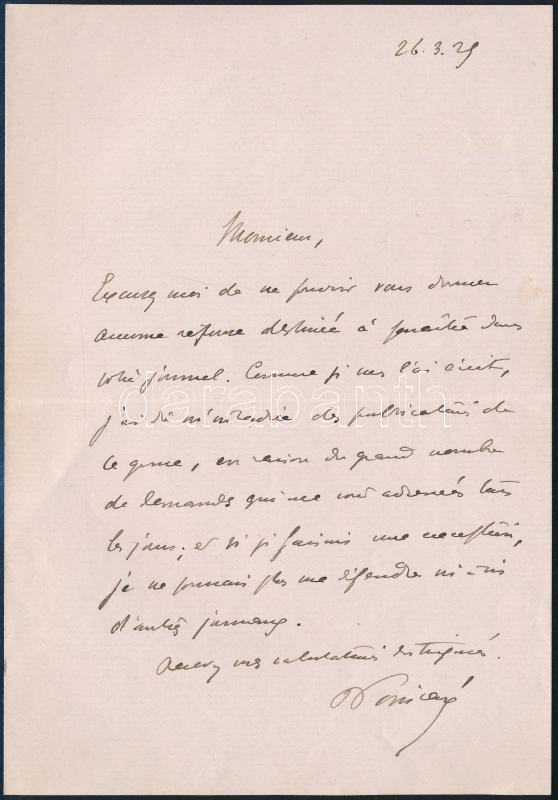 26.3.29
Monsieur,
Excusez moi de ne pouvoir vous donner
aucune réponse destinée à paraître dans
votre journal. Comme je vous l'ai écrit,
j'ai dû m'interdire des publications de
ce genre, en raison du grand nombre
de demandes qui me sont adressées tous
les jours; et si je faisais une exception,
je ne pourrais plus me défendre vis-à-vis
d'autres journaux.
Recevez mes salutations distinguées.
Poincaré
darabanth